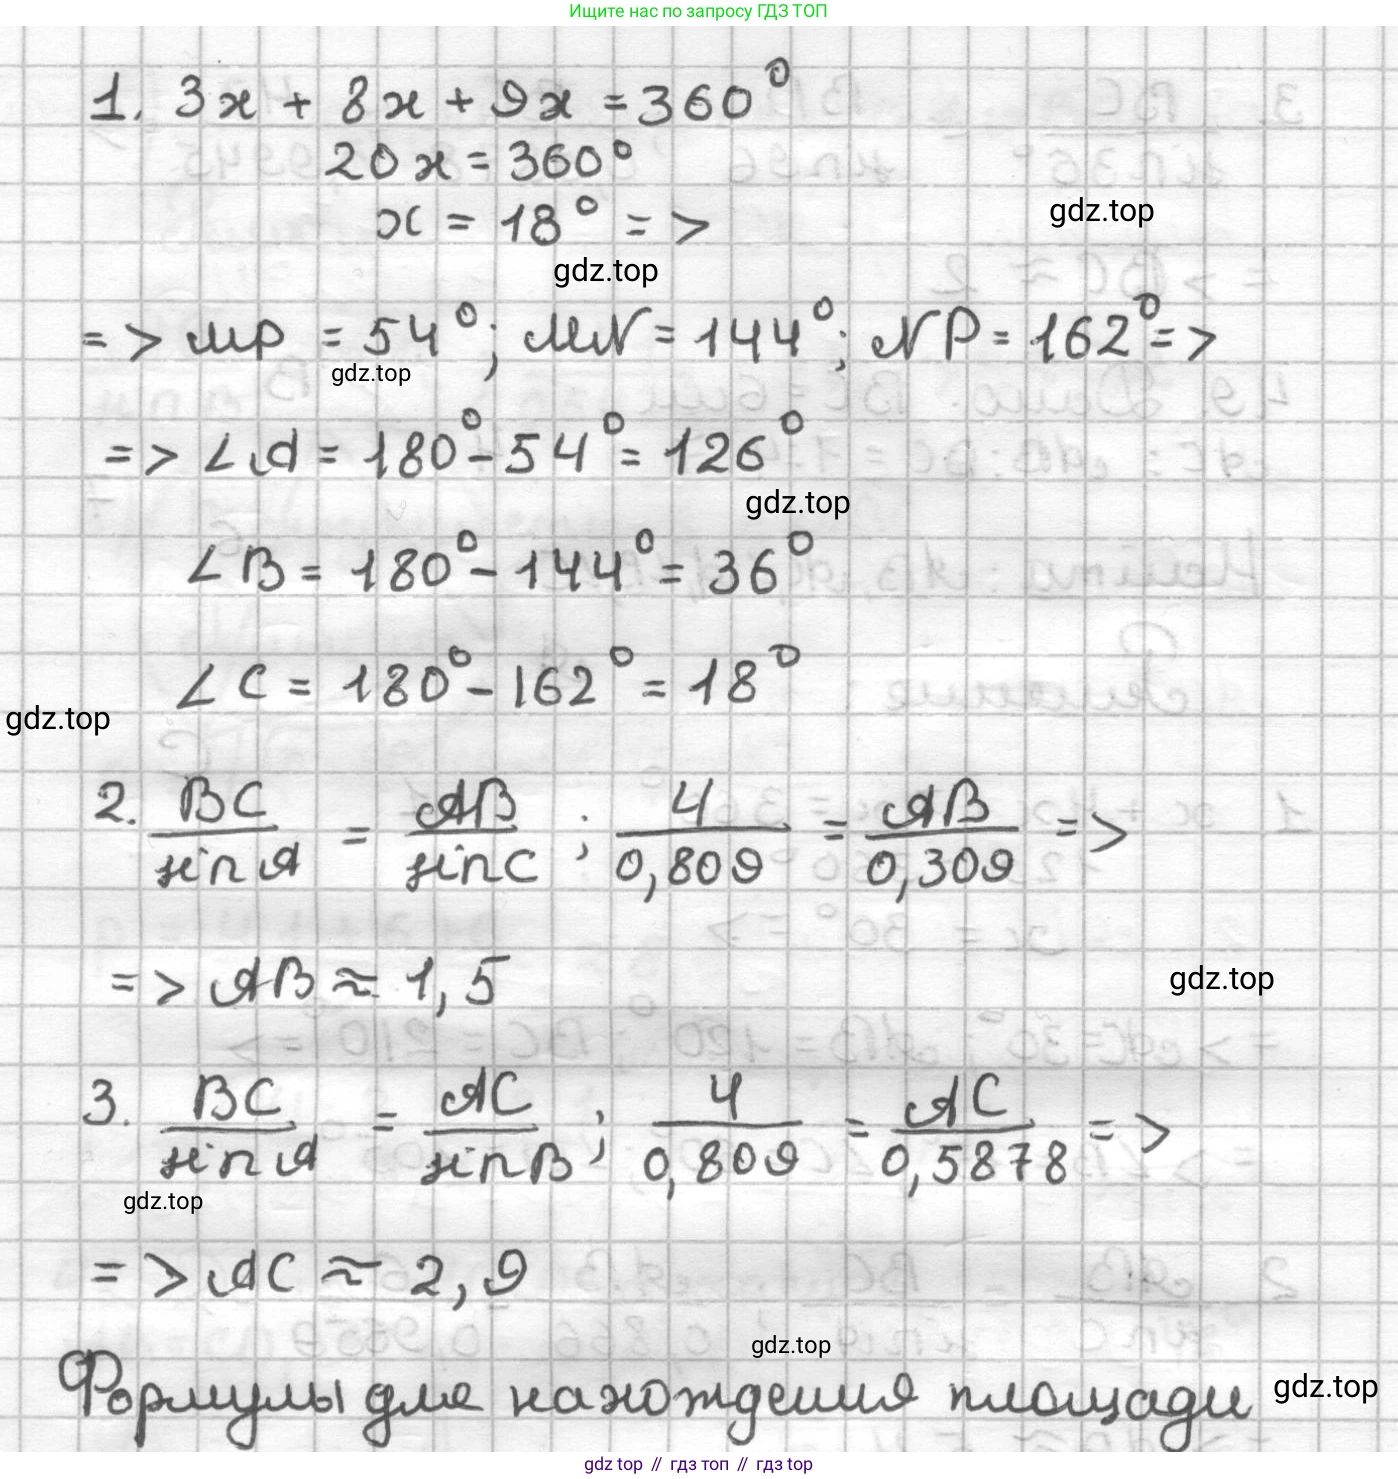 Ищите нас по запросу ГДЗ ТОП
1. 3x + 8x + 9x = 360°
20x = 360°
x = 18° =>
gdz.top
gdz.top
=> MP = 54°; MN = 144°; NP = 162° =>
gdz.top
=> ∠A = 180° - 54° = 126°
gdz.top
∠B = 180° - 144° = 36°
∠C = 180° - 162° = 18°
gdz.top
2. BC/sin A = AB/sin C ; 4/0,809 = AB/0,309 =>
=> AB ≈ 1,5
gdz.top
3. BC/sin A = AC/sin B ; 4/0,809 = AC/0,5878 =>
gdz.top
=> AC ≈ 2,9
gdz.top
Формулы для нахождения площади
gdz.top
gdz.top // гдз топ // гдз top